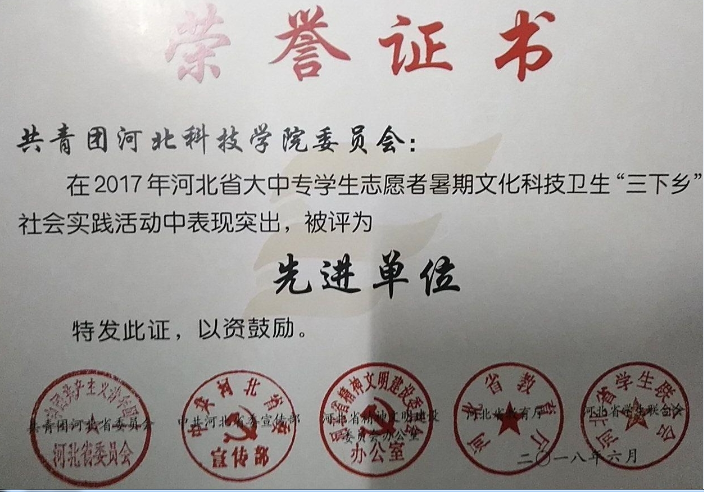 荣誉证书
共青团河北科技学院委员会：
在2017年河北省大中专学生志愿者暑期文化科技卫生“三下乡”
社会实践活动中表现突出，被评为
先进单位
特发此证，以资鼓励。
共青团河北省委员会
中共河北省委宣传部
河北省精神文明建设
委员会办公室
河北省教育厅
河北省学生联合会
河北省委员会
办公室
河北省教育厅
河北省学生联合会
二〇一八年六月